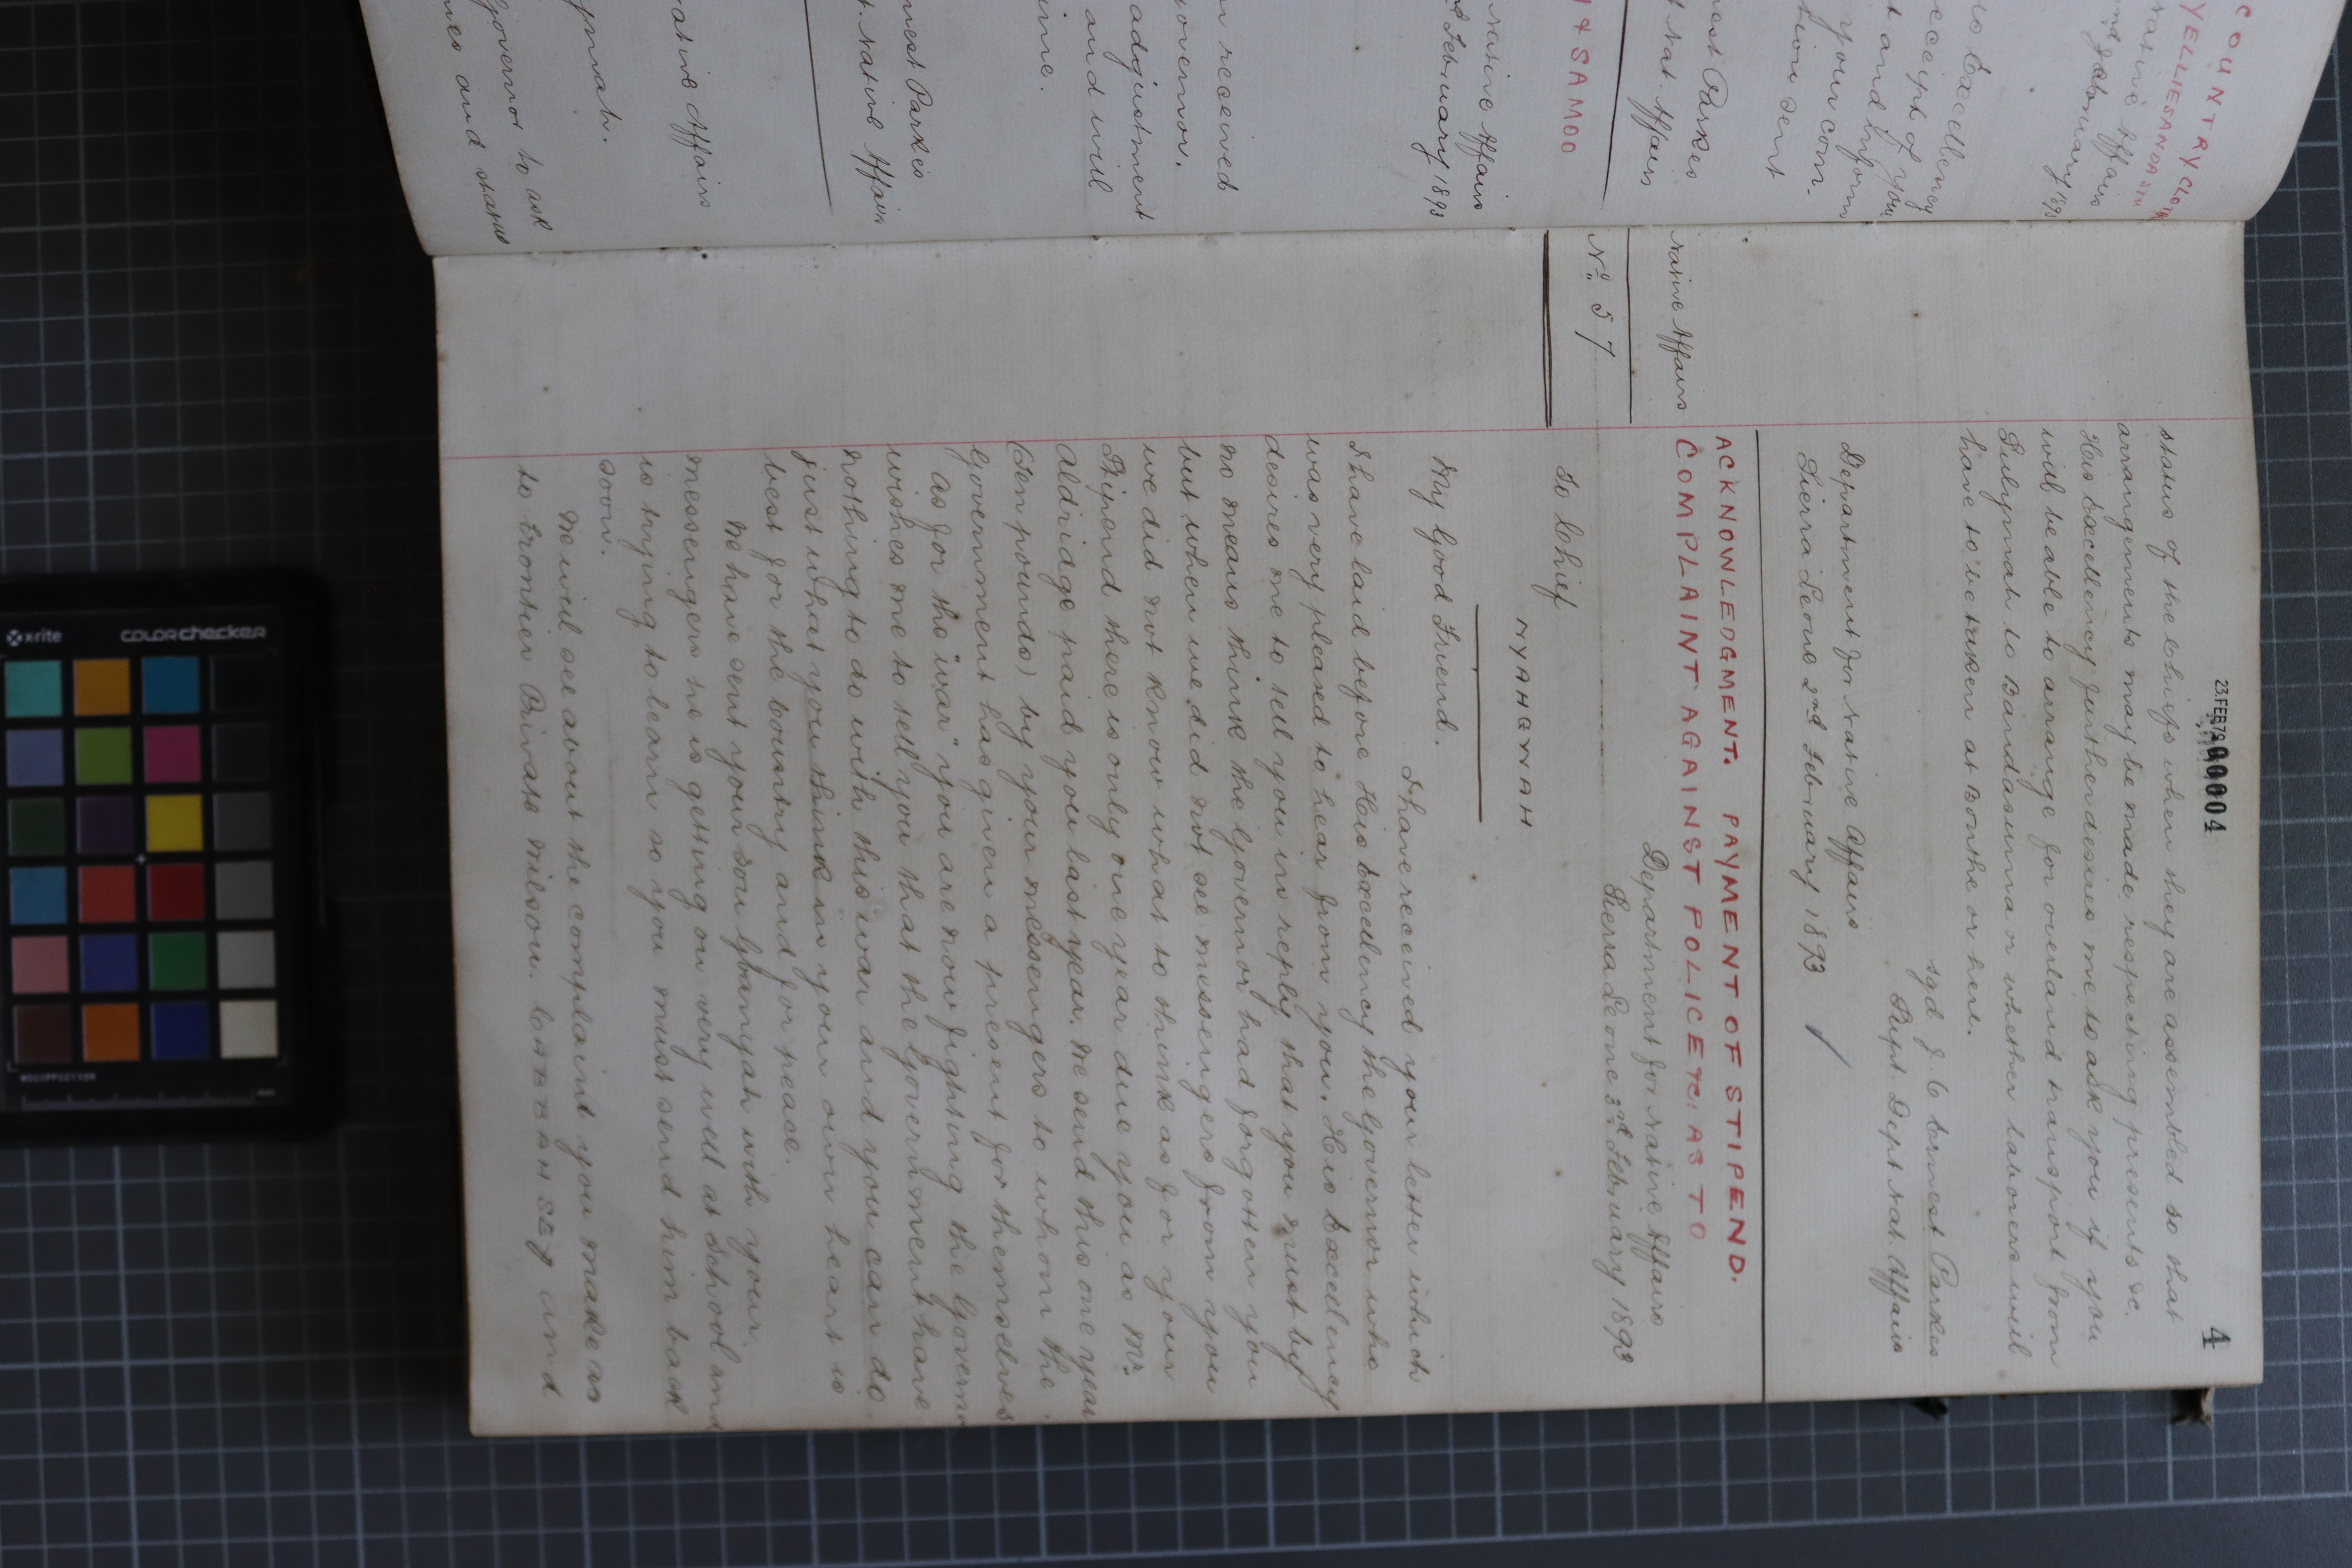 COUNTRYCLOTH
YELLIESANDASTE
Native Affairs
2nd February 1893
His Excellency
receipt of your
t and inform
your com-
tion sent
nest Parkes
t Nat. Affairs
Y & SAMOO
Native Affairs
d February 1893
received
Governor.
adjustment
and will
ime.
nest Parkes
t Native Affairs
ative Affairs
ymah.
Governor to ask
mes and status
23 FEB 72
00004
4
status of the Chiefs when they are assembled so that
arrangements may be made respecting presents &c.
His Excellency further desires me to ask you if you
will be able to arrange for overland transport from
Sulymah to Bandasuma or whether labourers will
have to be taken at Bonthe or here.
sgd J. C Ernest Parkes
Supt Dept Nat. Affairs
Department for Native Affairs
Sierra Leone 2nd February 1893
ACKNOWLEDGMENT. PAYMENT OF STIPEND.
COMPLAINT AGAINST POLICE &c: AS TO
Native Affairs
No 57
Department for Native Affairs
Sierra Leone 3rd February 1893
To Chief
NYAHGWAH
My Good Friend.
I have received your letter which
I have laid before His Excellency the Governor who
was very pleased to hear from you. His Excellency
desires me to tell you in reply that you must by
no means think the Governor had forgotten you
but when we did not see messengers from you
we did not know what to think as for your
Stipend there is only one year due you as Mr.
Aldriage paid you last year. We send this one year
(Ten pounds) by your messengers to whom the
Government has given a present for themselves
As for the "war" you are now fighting the Governor
wishes me to tell you that the Government have
nothing to do with this war and you can do
just what you think in your own heart is
best for the Country and for peace.
We have sent your son Gbangah with your
messengers he is getting on very well at School and
is trying to learn so you must send him back
soon.
We will see about the complaint you make as
to Frontier Private Wilson. COBBAH SEY and